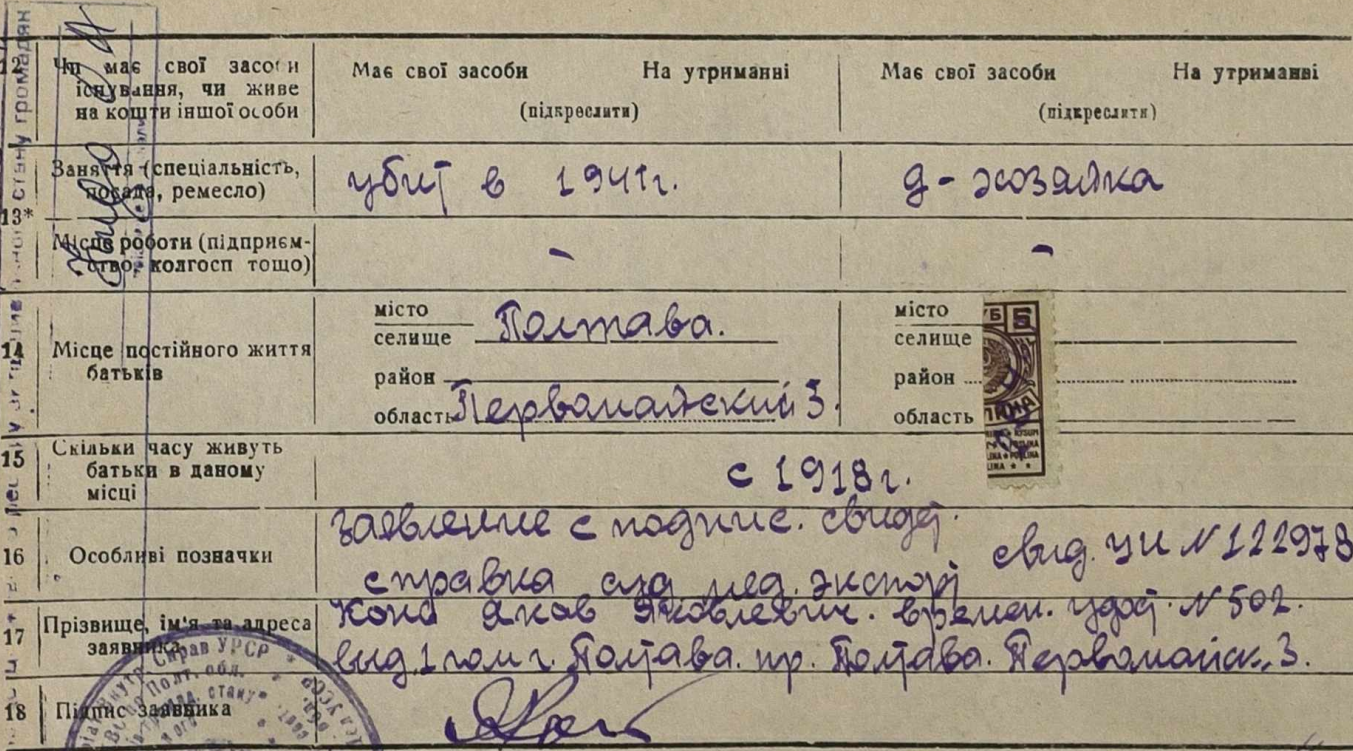 12 Чи має свої засоби існування, чи живе на кошти іншої особи
Має свої засоби На утриманні (підкреслити)
Має свої засоби На утриманні (підкреслити)
13* Заняття (спеціальність, посада, ремесло)
убит в 1941г.
д-хозяйка
Місце роботи (підприємство, колгосп тощо)
-
-
14 Місце постійного життя батьків
місто
селище Полтава.
район
область Первомайский 3.
місто
селище
район
область
15 Скільки часу живуть батьки в даному місці
с 1918г.
16 Особливі позначки
заявление с подпис. свидет.
справка суд мед. эксперт
свид. УИ N 122978
17 Прізвище, ім'я та адреса заявника
Яков Яковлевич. времен. удост. N 502.
выд. 1 гом г. Полтава. пр. Полтава. Первомайск., 3.
18 Підпис заявника
стану громадян
Справ УРСР
Полт. обл.
5